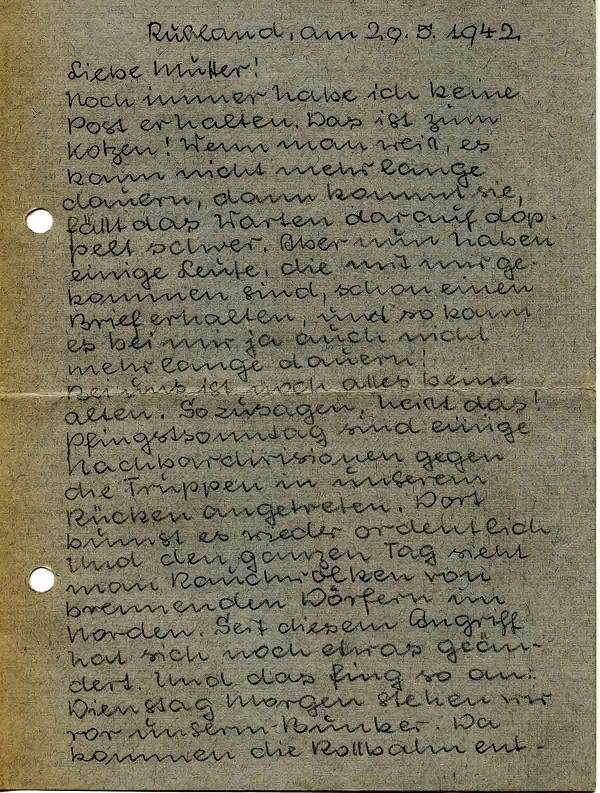 Rußland, am 29.5.1942.
Liebe Mutter!
Noch immer habe ich keine
Post erhalten. Das ist zum
Kotzen! Wenn man weiß, es
kann nicht mehr lange
dauern, dann kommt sie,
fällt das Warten darauf dop-
pelt schwer. Aber nun haben
einige Leute, die mit mir ge-
kommen sind, schon einen
Brief erhalten, und so kann
es bei mir ja auch nicht
mehr lange dauern!
Bei uns ist noch alles beim
alten. Sozusagen, heißt das!
Pfingstsonntag sind einige
Nachbardivisionen gegen
die Truppen in unserem
Rücken angetreten. Dort
bumst es wieder ordentlich
und den ganzen Tag sieht
man Rauchwolken von
brennenden Dörfern im
Norden. Seit diesem Angriff
hat sich noch etwas geän-
dert. Und das fing so an:
Dienstag Morgen stehen wir
vor unserm Bunker. Da
kommen die Rollbahn ent-